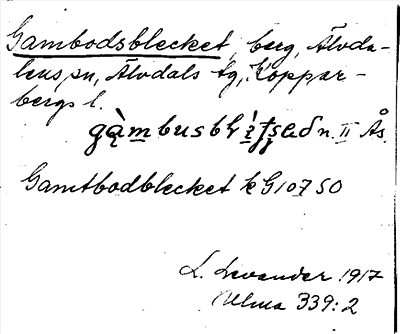 Gambodsblecket, berg, Älvda-
lens sn, Älvdals tg, Koppar-
bergs l.
Ås.
Gamtbodblecket k G10750
L. Levander 1917
Ulma 339:2